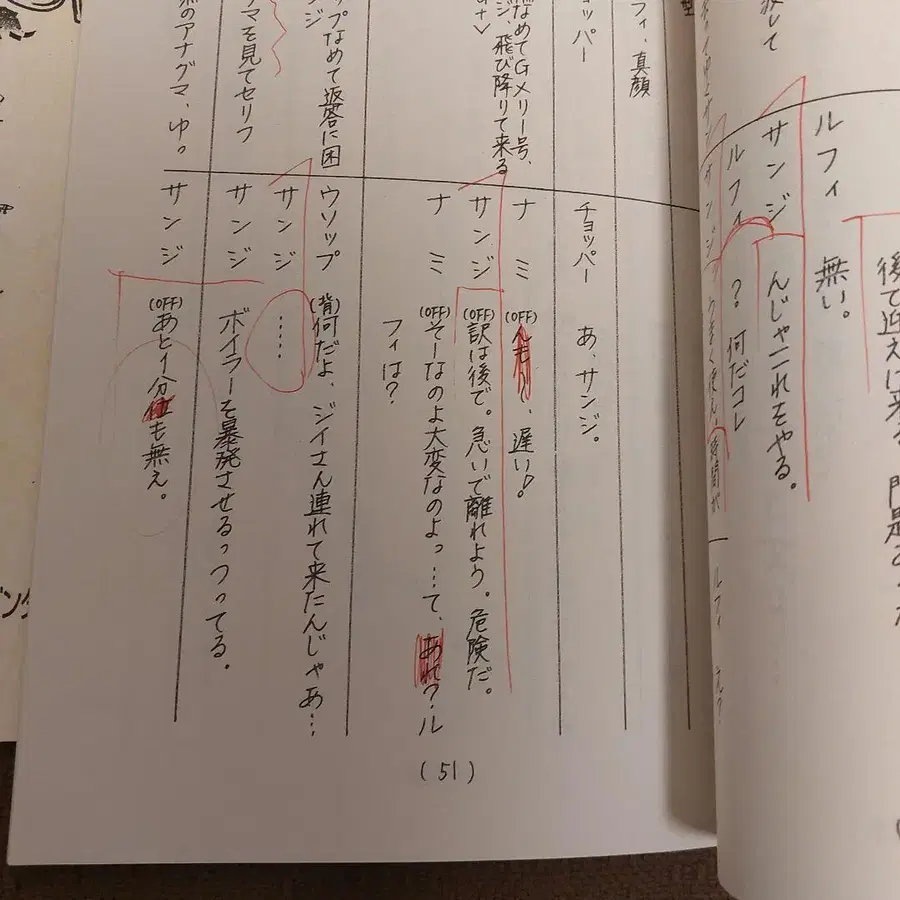 後で迎えに来る
ルフィ 無い。
サンジ んじゃこれをやる。
ルフィ ? 何だコレ
フィ、真顔
チョッパー
チョッパー あ、サンジ。
なめてGメリー号、
飛び降りて来る
ナミ (OFF) んも〜、遅い!
サンジ (OFF) 訳は後で。急いで離れよう。危険だ。
ナミ (OFF) そーなのよ大変なのよっ…て、あれ?ル
フィは?
プなめて返答に困
ジ
ウソップ (背) 何だよ、ジイさん連れて来たんじゃあ…
サンジ ……
マを見てセリフ
サンジ ボイラーを暴発させるっつってる。
のアナグマ、ゆ。
サンジ (OFF) あと1分も無え。
(51)